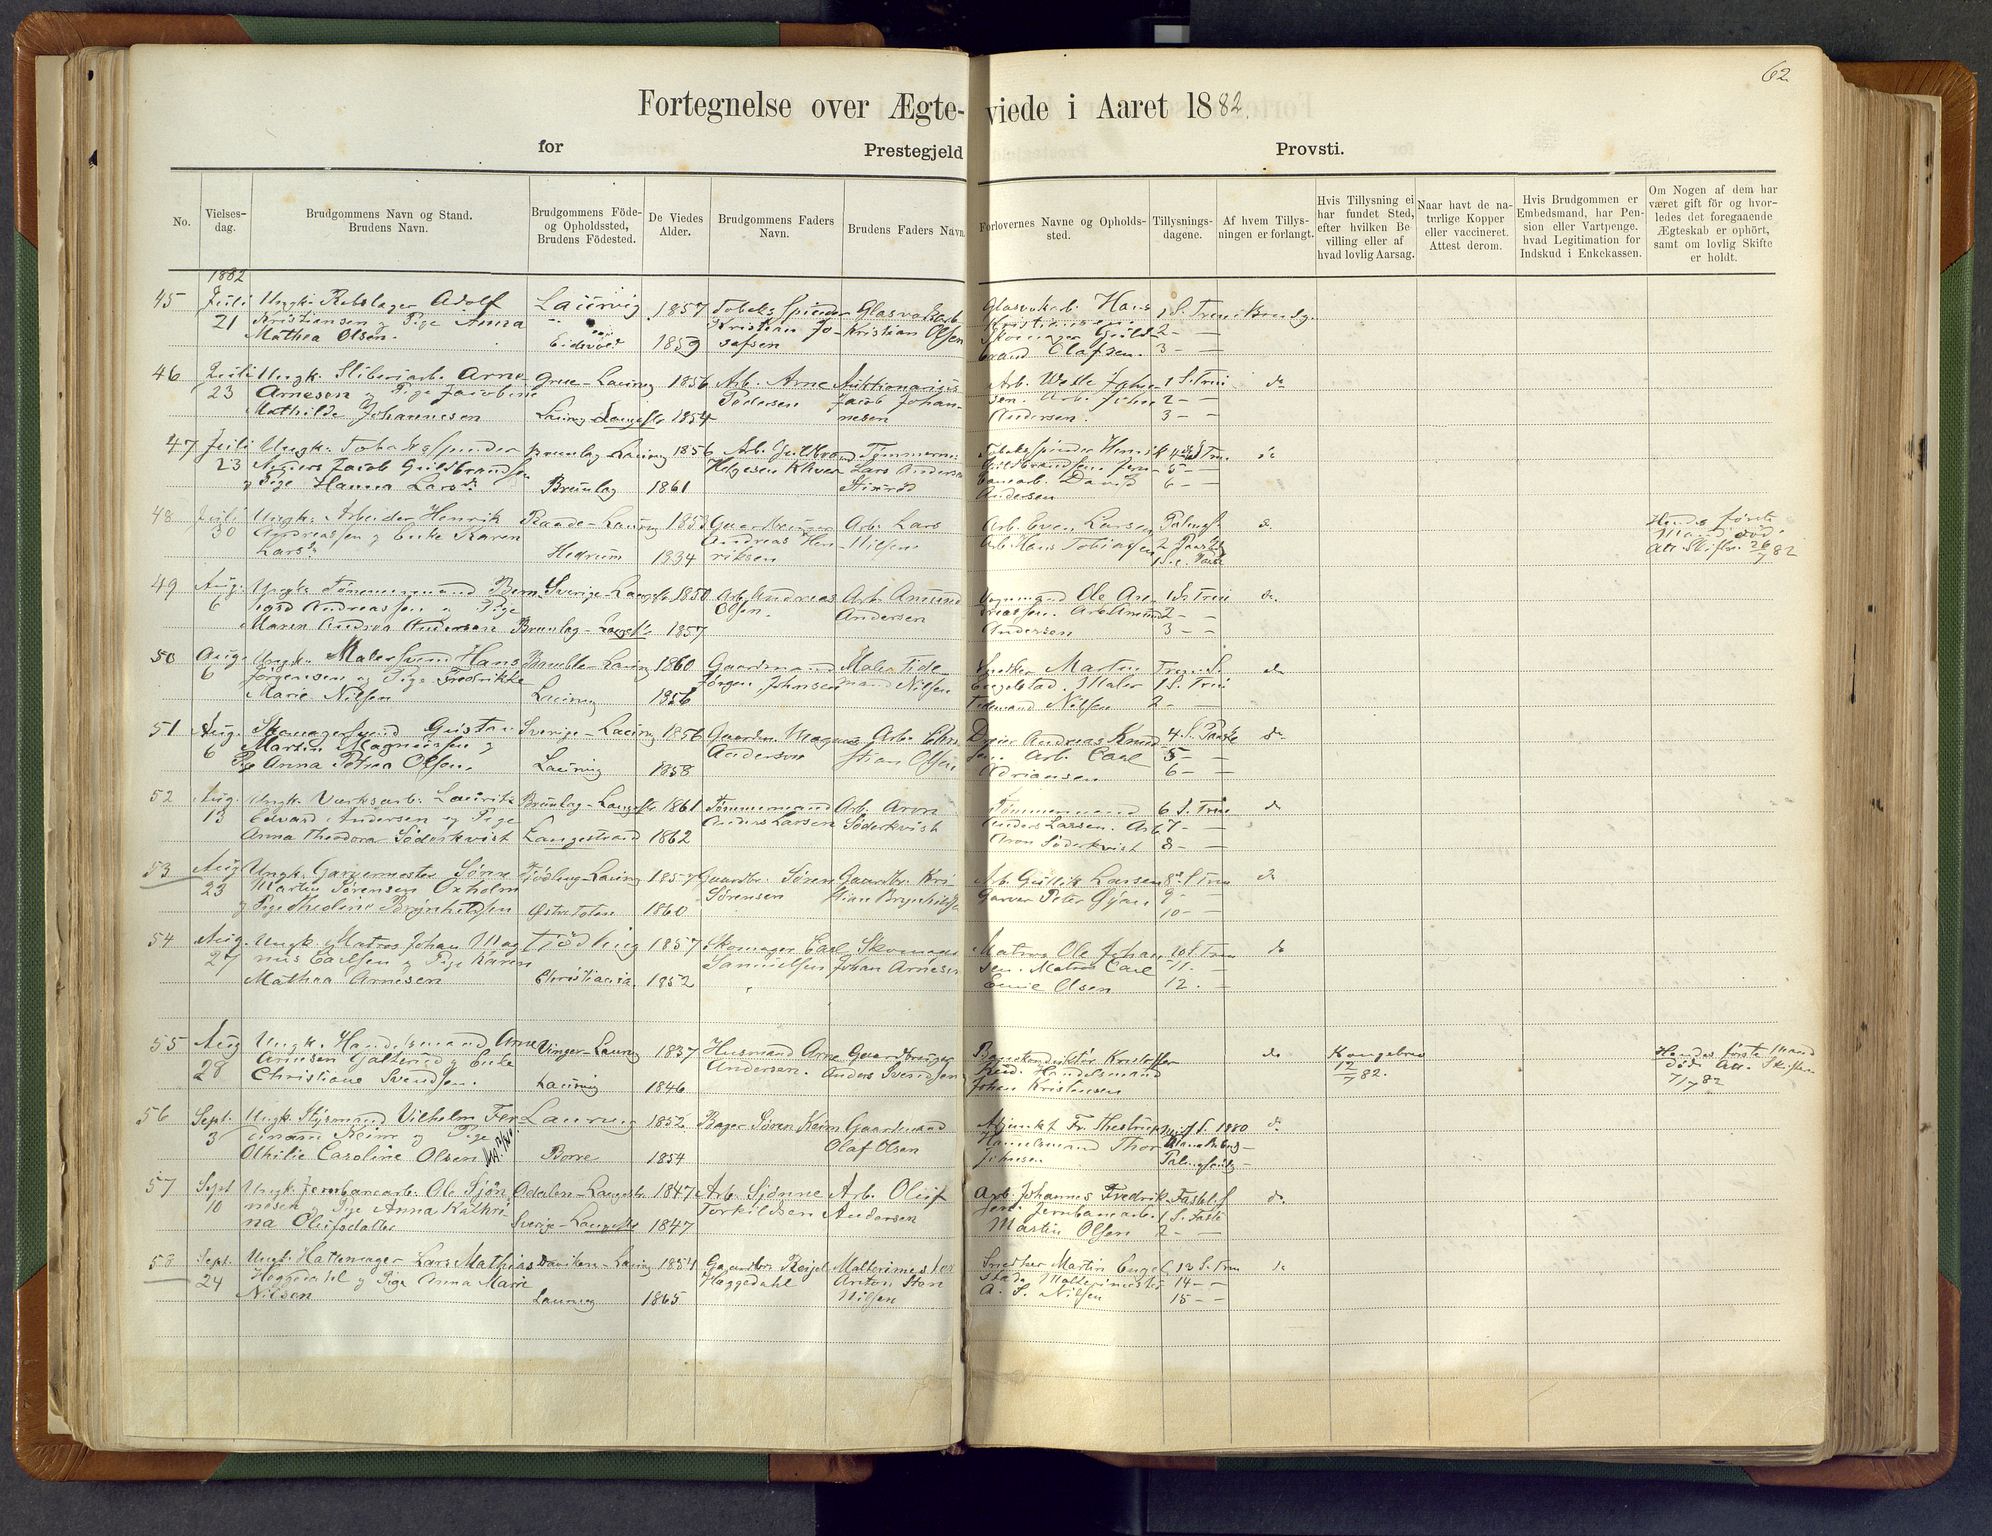 62.
Fortegnelse over Ægte- viede i Aaret 1882.
for Prestegjeld Provsti.
No.
Vielses-
dag.
Brudgommens Navn og Stand.
Brudens Navn.
Brudgommens Föde-
og Opholdssted,
Brudens Födested.
De Viedes
Alder.
Brudgommens Faders
Navn.
Brudens Faders Navn.
Forlovernes Navne og Opholds-
sted.
Tillysnings-
dagene.
Af hvem Tillys-
ningen er forlangt.
Hvis Tillysning ei
har fundet Sted,
efter hvilken Be-
villing eller af
hvad lovlig Aarsag.
Naar havt de na-
turlige Kopper
eller vaccineret.
Attest derom.
Hvis Brudgommen er
Embedsmand, har Pen-
sion eller Vartpenge.
hvad Legitimation for
Indskud i Enkekassen.
Om Nogen af dem har
været gift för og hvor-
ledes det foregaaende
Ægteskab er ophört,
samt om lovlig Skifte
er holdt.
1882
45 Juli Ungk. Rebslager Adolf Laurvig 1857 Glasv. Hans 1 S. Trin Brudg.
21 Kristiansen og Pige Anna Kristian Jo- Kristian Olsen 2 -
Mathea Olsen. Eidsvold 1859 safsen Olafsen. 3 -
46 Juli Ungk. Sliberiarb. Arne Grue - Laurvig 1856 Arb. Arne Arb. 1 S. Trin do
23 Arnesen og Pige Jacobine Pedersen Jacob Johan- sen. Arb. 2 -
Mathilde Johannesen 1854 nesen Andersen. 3 -
47 Juli Ungk. Tobakspinder Brunlag - Laurvig 1856 Arb. Guldbrand Tømmerm. Tobakspinder Henrik 4 S. Trin do
23 Anders Jacob Guldbrandsen Helgesen Lars Andersen Guldbrandsen 5 -
og Pige Hanna Larsd. Brunlag 1861 David 6 -
Andersen
48 Juli Ungk. Arbeider Henrik Raade - Laurvig 1853 Gaardbruger Arb. Lars Arb. Even Larsen do Hendes første
30 Andreassen og Enke Karen Andreas Hen- Nilsen Arb. Hans Tobiassen 2 Paaske Mand død.
Larsd. Hedrum 1834 riksen Att. Skifter. 26/7 82
49 Aug. Ungk. Tømmermand Sverige - 1850 Arb. Andreas Arb. Amund Ole An- 1 S. Trin do
6 Andreassen og Pige Olsen. Andersen driassen. Arb. Amund 2 -
Maren Andrea Andersen Brunlag - 1857 Andersen 3 -
50 Aug. Ungk. Malersvend Hans Bamble - Laurvig 1860 Gaardmand Maler Tide- Snedker Martin Trin. S. do
6 Jørgensen og Pige Fredrikke Jørgen Johnsen mand Nilsen Engelstad. Maler 1 S. Trin
Marie Nilsen Laurvig 1856 Tidemand Nilsen 2 -
51 Aug. Skomagersvend Gustav Sverige - Laurvig 1856 Gaardm. Magnus Arb. Chri- Dreier Andreas Knud- 4 S. Paaske do
6 Martin Magnussen og Anderson stian Olsen sen. Arb. Carl 5 -
Pige Anna Petrea Olsen. Laurvig 1858 Adriansen 6 -
52 Aug. Ungk. Værksarb. Lauritz Brunlag - 1861 Tømmermand Arb. Aron Tømmermand 6 S. Trin do
13 Edvard Andersen og Pige Anders Larsen Söderkvist Anders Larsen. Arb. 7 -
Anna Theodora Söderkvist Langestrand 1862 Aron Söderkvist 8 -
53 Aug. Ungk. Garvermester Sønne - Laurvig 1857 Gaardbr. Søren Gaardbr. Kri- Arb. Gullik Larsen 8 S. Trin do
23 Martin Sørensen Oxholm Sørensen stian Brynhildsen Garver Peter 9 -
og Pige Thedine Brynhildsen Østretoten 1860 10 -
54 Aug. Ungk. Matros Johan Mag- Tjödling 1857 Skomager Carl Skomager Matros Ole Johan- 10 S. Trin do
27 nus Carlsen og Pige Karen Samuelsen Johan Arnesen sen. Matros Carl 11 -
Mathea Arnesen Christiania. 1852 Emil Olsen 12 -
55 Aug Ungk. Handelsmand Arne Vinger - Laurvig 1837 Husmand Arne Gaardbruger Kristoffer do Kongebrev Hendes første Mand
28 Arnesen Galterud og Enke Andersen. Anders Svendsen Handelsmand 12/7 82. død. Att. Skifter.
Christiane Svendsen. Laurvig 1846 Johan Kristensen 11/7 82
56 Sept. Ungk. Styrmand Vilhelm Fer- Laurvig 1852 Bager Søren Keim Gaardmand Adjunkt Fr. Thestrup 1880 do
3 dinand Keim og Pige Olaf Olsen Handelsmand Thor
Othilie Caroline Olsen Borre 1854 Johnsen Palmesöndag
57 Sept Ungk. Jernbanearb. Ole Sjøn- Odalen - 1847 Arb. Sjønne Arb. Oluf Arb. Johannes Fredrik- Fastel. S. do
10 nesen og Pige Anna Kathri- Torkildsen Andersen sen. Jernbanearb. 1 S. Faste
na Olufsdatter Sverige - 1847 Martin Olsen 2 -
58 Sept. Ungk. Hattemager Lars Mathias - Laurvig 1854 Gaardbr. Reijel Maltermester Snedker Martin Engel- 13 S. Trin do
24 Heggedahl og Pige Anna Marie Heggedahl Anton Sten stad. Maltermester 14 -
Nilsen Laurvig 1865 Nilsen A. S. Nilsen 15 -